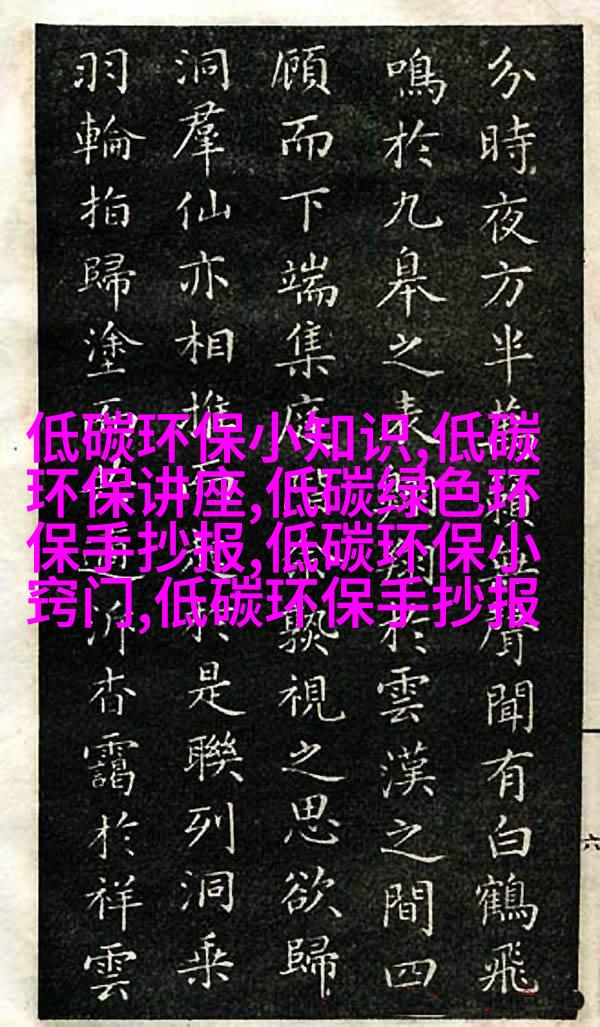 低碳环保小知识,低碳
环保讲座,低碳绿色环
保手抄报,低碳环保小
窍门,低碳环保手抄报
分時夜方半萬籟聲聞有白鶴飛
鳴於九皐之表翱翔於雲漢之間四
顧而下端集庭階熟視之思欲歸
洞羣仙亦相推於是聯列洞乘
羽輪拍歸塗泝杳靄於祥雲
六